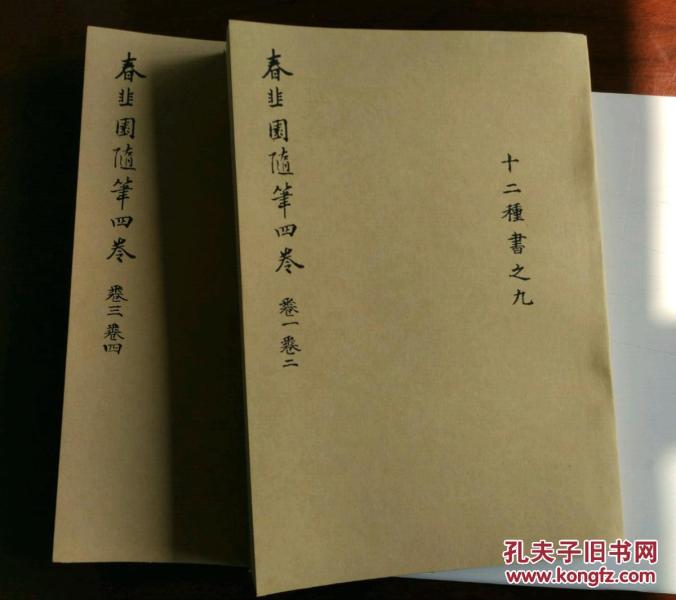 十二種書之九
春韭園隨筆四卷
卷一卷二
春韭園隨筆四卷
卷三卷四
孔夫子旧书网
www.kongfz.com